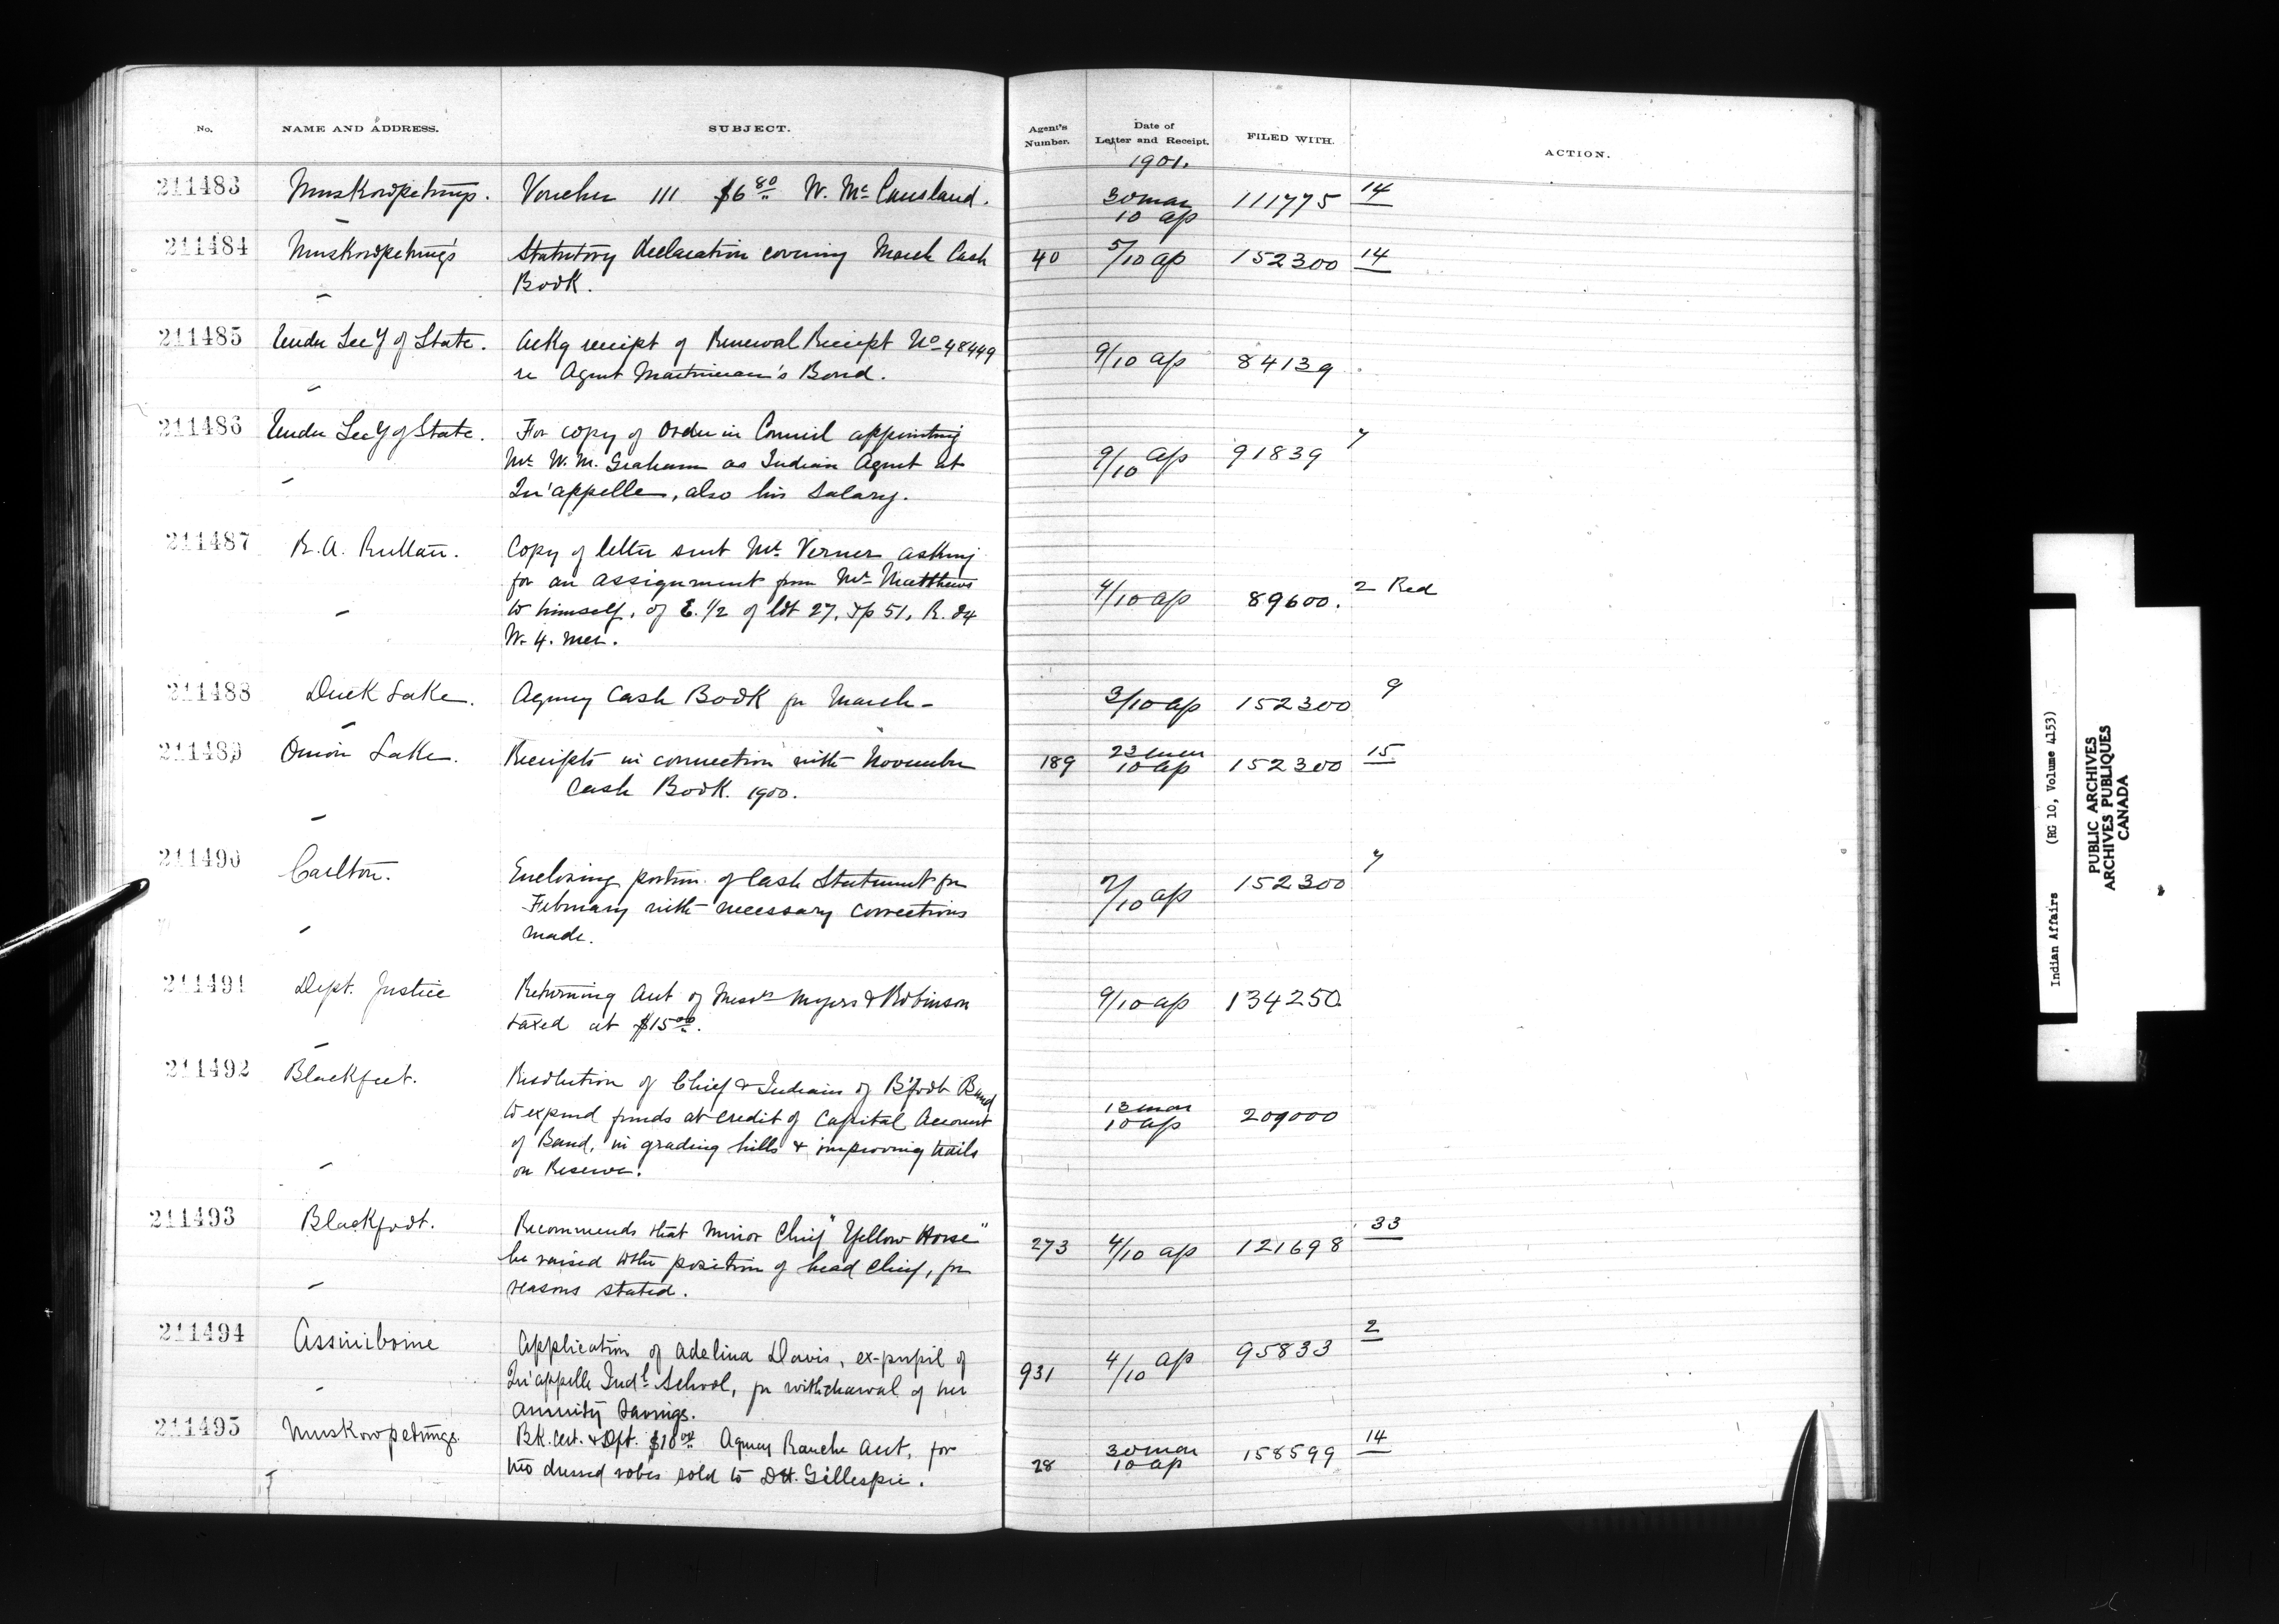 No. NAME AND ADDRESS. SUBJECT. Agent's Number. Date of Letter and Receipt. FILED WITH. ACTION.
1901.
211483 Muskowpetungs. Voucher 111 $6.80 W. McCausland. 30 mar 10 ap 111775 14
211484 Muskowpetung's Statutory declaration covering March Cash 40 5/10 ap 152300 14
Book.
211485 Under Secy of State. Ackg receipt of Renewal Receipt No 48449 9/10 ap 84139
re Agent Martineau's Bond.
211486 Under Secy of State. For copy of Order in Council appointing 9/10 ap 91839 7
Mr. W. M. Graham as Indian Agent at
Qu'appelle, also his salary.
211487 R. A. Ruttan. Copy of letter sent Mr. Verner asking
for an assignment from Mr. Matthews 4/10 ap 89600. 2 Red
to himself, of E. 1/2 of lot 27, Tp 51, R. 24
W. 4. mer.
211488 Duck Lake. Agency Cash Book for March - 3/10 ap 152300 9
211489 Onion Lake. Receipts in connection with November 189 23 mar 10 ap 152300 15
Cash Book. 1900.
211490 Carlton. Enclosing portion of Cash Statement for 7/10 ap 152300 7
February with necessary corrections
made.
211491 Dept. Justice Returning Acct of Messrs Myers & Robinson 9/10 ap 134250
taxed at $15.00.
211492 Blackfeet. Resolution of Chief & Indians of B'foot Band
to expend funds at credit of Capital Account 13 mar 10 ap 209000
of Band, in grading hills & improving trails
on Reserve.
211493 Blackfoot. Recommends that minor Chief "Yellow Horse" 273 4/10 ap 121698 33
be raised to the position of head Chief, for
reasons stated.
211494 Assiniboine Application of Adelina Davis, ex-pupil of 931 4/10 ap 95833 2
Qu'appelle Indl. School, for withdrawal of her
annuity savings.
211495 Muskowpetungs. Bk. Cert. & Dft. $10.00 Agency Ranche Acct, for 28 30 mar 10 ap 158599 14
two dressed robes sold to D. H. Gillespie.
Indian Affairs (RG 10, Volume 4153)
PUBLIC ARCHIVES
ARCHIVES PUBLIQUES
CANADA